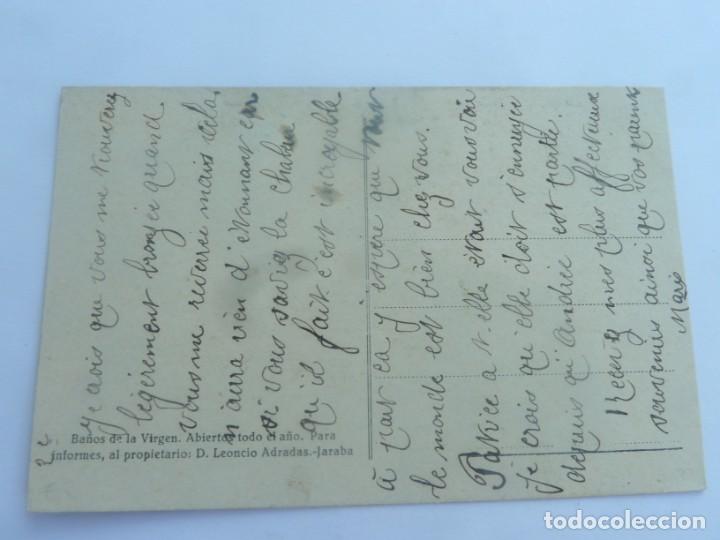 Je crois que vous me trouverez
légèrement bronzée quand
vous me reverrez mais cela
n'aura rien d'étonnant car
si vous saviez la chaleur
qu'il fait c'est incroyable
à part ça j'espère que tout
le monde est bien chez vous.
Patrice a t-elle était vous voir
je crois qu'elle doit s'ennuyer
depuis qu'Andrée est partie.
Recevez mes plus affectueux
souvenirs ainsi que vos parents
Baños de la Virgen. Abiertos todo el año. Para
informes, al propietario: D. Leoncio Adradas.-Jaraba
todocoleccion